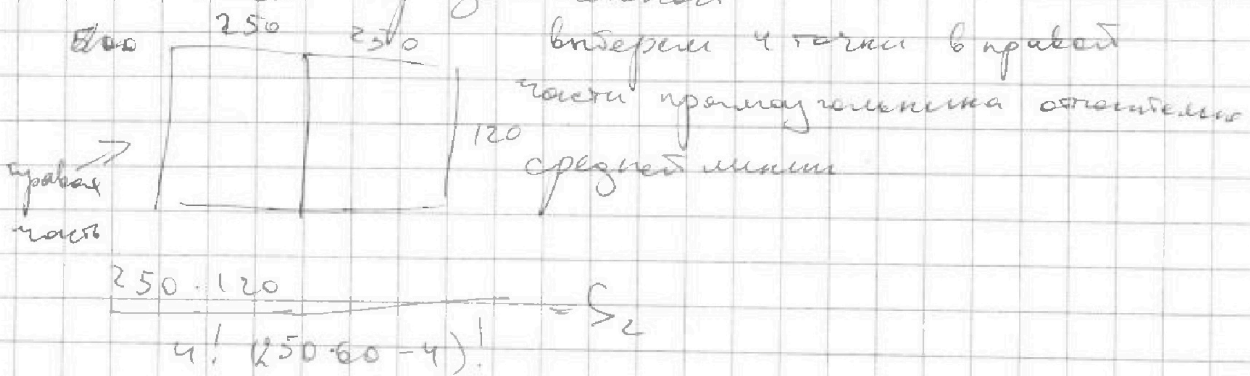 250 250
выберем 4 точки в правой
части прямоугольника относительно
120
средней линии
правая
часть
250·120
= S₂
4! (250·60-4)!